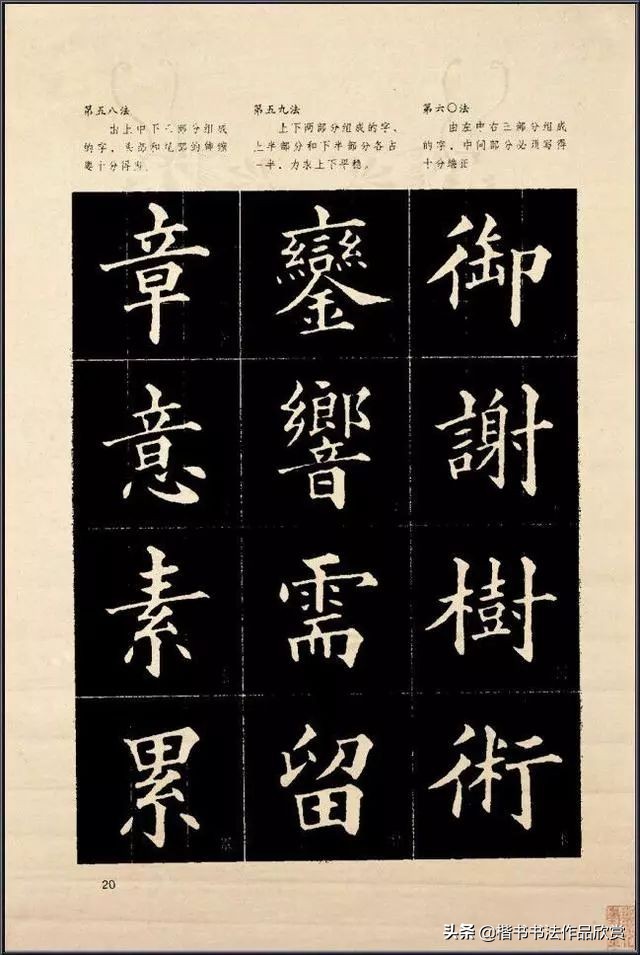 第五八法
由上中下三部分组成
的字，头部和尾部的伸缩
要十分得当。
第五九法
上下两部分组成的字、
上半部分和下半部分各占
一半，力求上下平稳。
第六〇法
由左中右三部分组成
的字，中间部分必须写得
十分端正
章 鑾 御
意 響 謝
素 需 樹
累 留 術
20
头条 @楷书书法作品欣赏